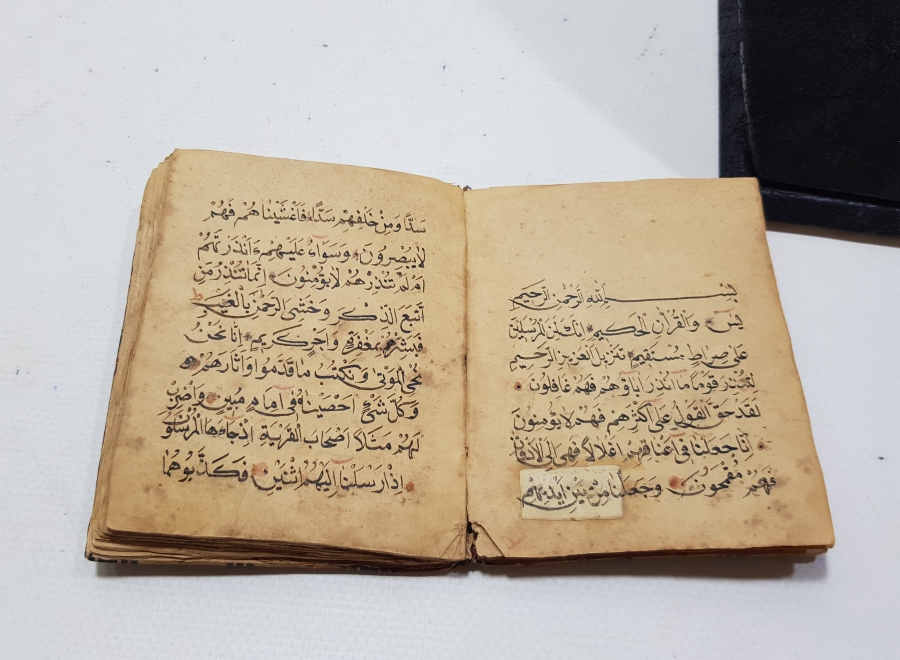 بسم الله الرحمن الرحيم
يس والقرآن الحكيم انك لمن المرسلين
على صراط مستقيم تنزيل العزيز الرحيم
لتنذر قوما ما انذر اباؤهم فهم غافلون
لقد حق القول على أكثرهم فهم لا يؤمنون
انا جعلنا في اعناقهم اغلالا فهي الى الاذقان
فهم مقمحون وجعلنا من بين ايديهم
سدا ومن خلفهم سدا فاغشيناهم فهم
لا يبصرون وسواء عليهم ءانذرتهم
ام لم تنذرهم لا يؤمنون انما تنذر من
اتبع الذكر وخشى الرحمن بالغيب
فبشره بمغفرة واجر كريم انا نحن
نحي الموتى ونكتب ما قدموا واثارهم
وكل شئ احصيناه في امام مبين واضرب
لهم مثلا اصحاب القرية اذ جاءها المرسلون
اذ ارسلنا اليهم اثنين فكذبوهما